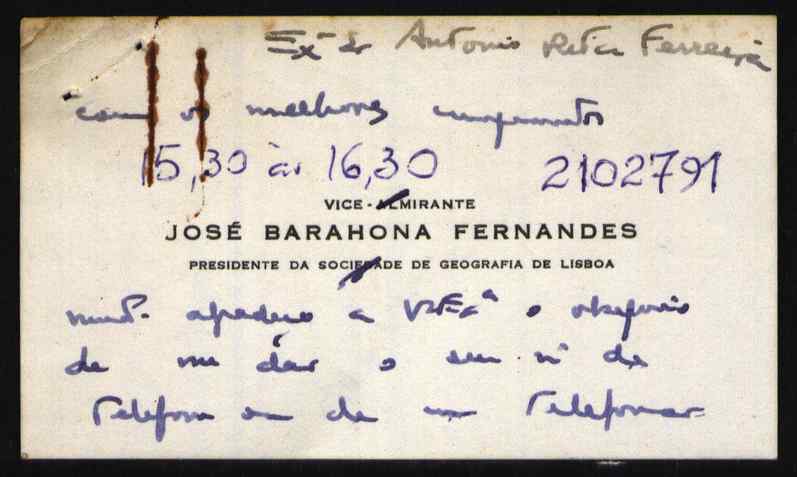 Exº Sr António Rita Ferreira
com os melhores cumprimentos
15,30 às 16,30 2102791
VICE-ALMIRANTE
JOSÉ BARAHONA FERNANDES
PRESIDENTE DA SOCIEDADE DE GEOGRAFIA DE LISBOA
muito agradece a V. Exª o obséquio
de me dar o seu nº de
Telefone ou de me Telefonar